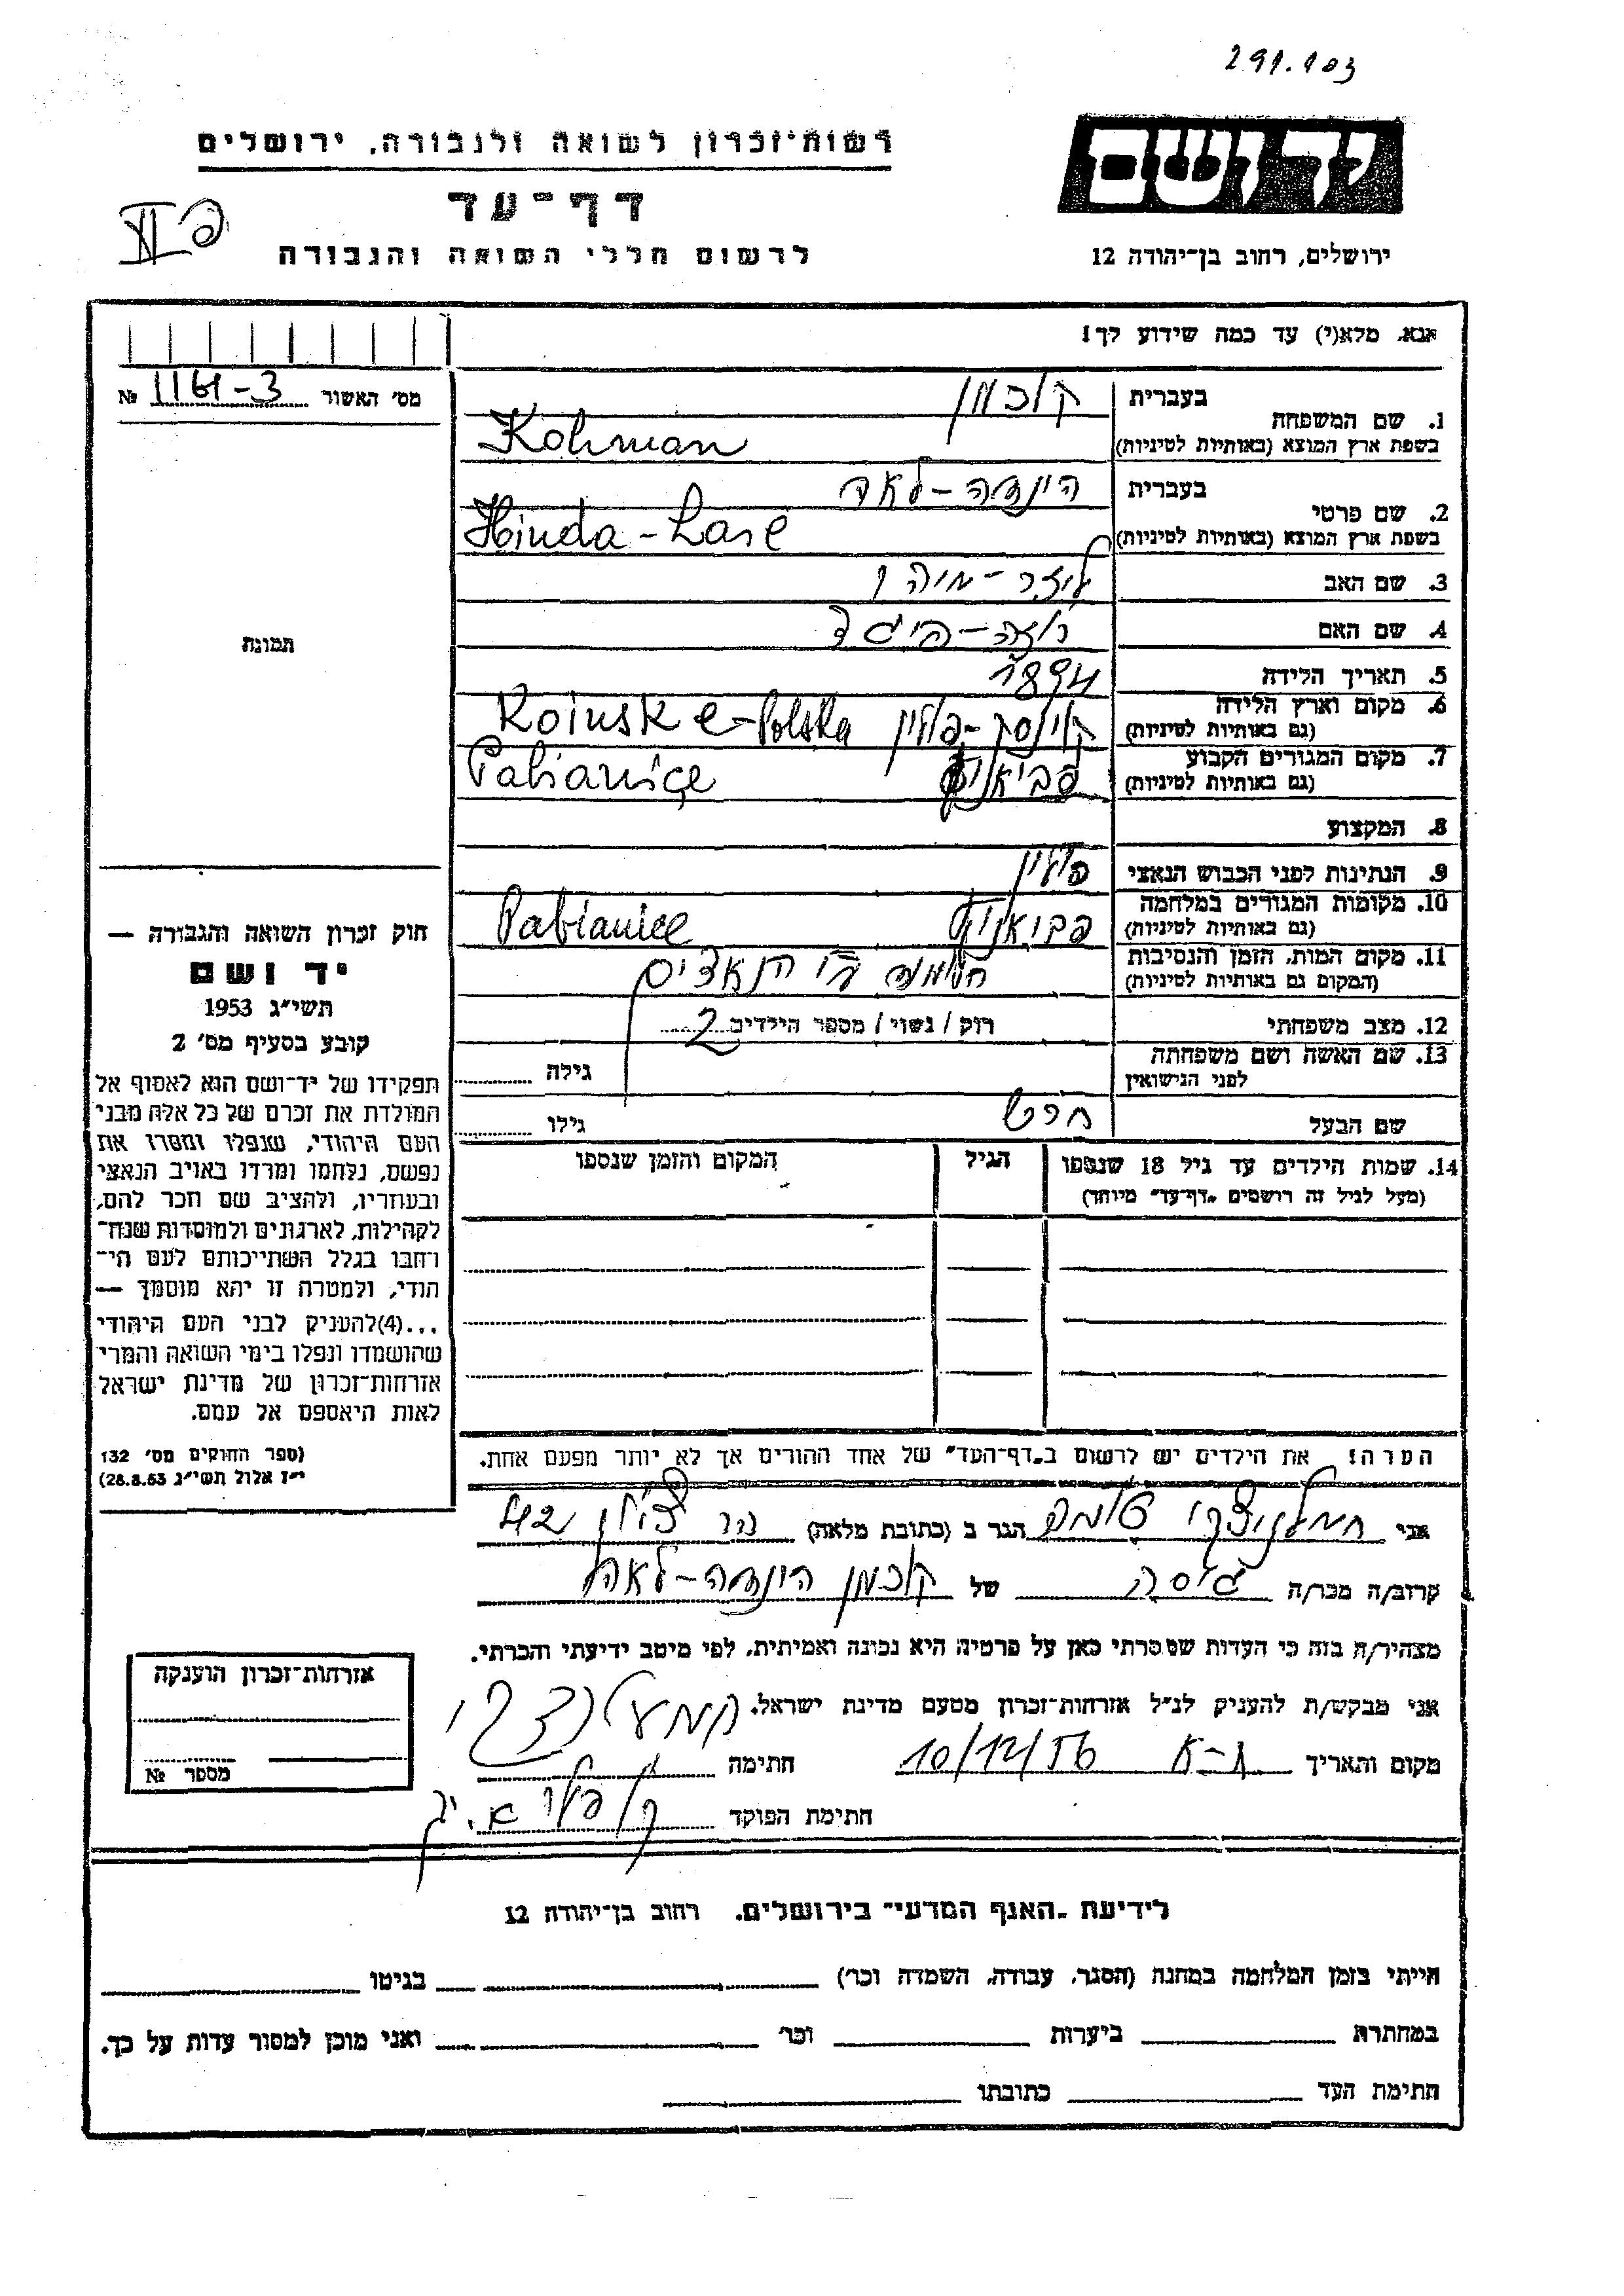 291.103
יד ושם
רשות־זכרון לשואה ולגבורה, ירושלים
דף־עד
לרשום חללי השואה והגבורה
ירושלים, רחוב בן־יהודה 12
אנא, מלא(י) עד כמה שידוע לך!
מס׳ האשור 1161-3 №
1. שם המשפחה
בעברית קוכמן
בשפת ארץ המוצא (באותיות לטיניות) Kohman
2. שם פרטי
בעברית הינדה-לאה
בשפת ארץ המוצא (באותיות לטיניות) Hinda-Lare
3. שם האב
4. שם האם
5. תאריך הלידה 1894
6. מקום וארץ הלידה
(גם באותיות לטיניות) קוינסק-פולין Koinske-Polska
7. מקום המגורים הקבוע
(גם באותיות לטיניות) פביאניץ Pabianice
8. המקצוע
9. הנתינות לפני הכבוש הנאצי פולין
10. מקומות המגורים במלחמה
(גם באותיות לטיניות) פביאניץ Pabianice
11. מקום המות, הזמן והנסיבות
(המקום גם באותיות לטיניות) הנאצים
12. מצב משפחתי רוק / נשוי / מספר הילדים 2
13. שם האשה ושם משפחתה
לפני הנישואין
גילה
שם הבעל
גילו
14. שמות הילדים עד גיל 18 שנספו
(מעל לגיל זה רושמים „דף־עד״ מיוחד)
הגיל
המקום והזמן שנספו
תמונה
חוק זכרון השואה והגבורה —
יד ושם
תשי״ג 1953
קובע בסעיף מס׳ 2
תפקידו של יד־ושם הוא לאסוף אל
המולדת את זכרם של כל אלה מבני
העם היהודי, שנפלו ומסרו את
נפשם, נלחמו ומרדו באויב הנאצי
ובעוזריו, ולהציב שם וזכר להם,
לקהילות, לארגונים ולמוסדות שנח־
רבו בגלל השתייכותם לעם הי־
הודי, ולמטרה זו יהא מוסמך —
...(4)להעניק לבני העם היהודי
שהושמדו ונפלו בימי השואה והמרי
אזרחות־זכרון של מדינת ישראל
לאות היאספם אל עמם.
(ספר החוקים מס׳ 132
י״ז אלול תשי״ג 28.8.53)
הערה! את הילדים יש לרשום ב„דף־העד״ של אחד ההורים אך לא יותר מפעם אחת.
אני הגר ב (כתובת מלאה) הר ציון 42
קרוב/ה מכר/ה גיסה של קוכמן הינדה-לאה
מצהיר/ה בזה כי העדות שמסרתי כאן על פרטיה היא נכונה ואמיתית, לפי מיטב ידיעתי והכרתי.
אני מבקש/ת להעניק לנ״ל אזרחות־זכרון מטעם מדינת ישראל.
מקום ותאריך ת-א 10/12/56 חתימה
חתימת הפוקד
אזרחות־זכרון הוענקה
מספר №
לידיעת „האגף המדעי״ בירושלים, רחוב בן־יהודה 12
הייתי בזמן המלחמה במחנה (הסגר, עבודה, השמדה וכר׳) בגיטו
במחתרת ביערות וכר׳ ואני מוכן למסור עדות על כך.
חתימת העד כתובתו